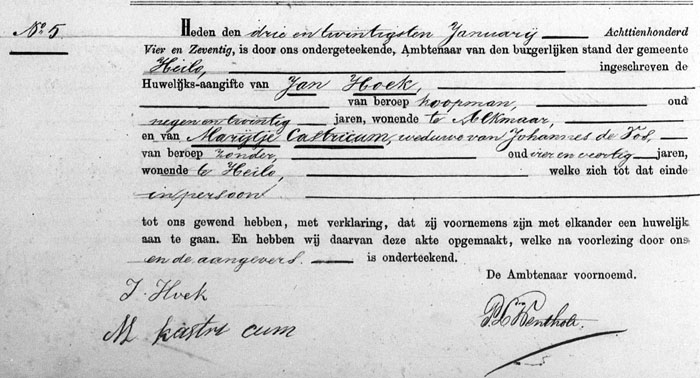 No. 5
Heden den drie en twintigsten Januarij Achttienhonderd
Vier en Zeventig, is door ons ondergeteekende, Ambtenaar van den burgerlijken stand der gemeente
Heilo, ingeschreven de
Huwelijks-aangifte van Jan Hoek,
van beroep koopman, oud
negen en twintig jaren, wonende te Alkmaar,
en van Marijtje Castricum, weduwe van Johannes de Vos,
van beroep zonder, oud vier en veertig jaren,
wonende te Heilo, welke zich tot dat einde
in persoon
tot ons gewend hebben, met verklaring, dat zij voornemens zijn met elkander een huwelijk
aan te gaan. En hebben wij daarvan deze akte opgemaakt, welke na voorlezing door ons
en de aangevers. is onderteekend.
De Ambtenaar voornoemd.
J. Hoek
M kastri cum